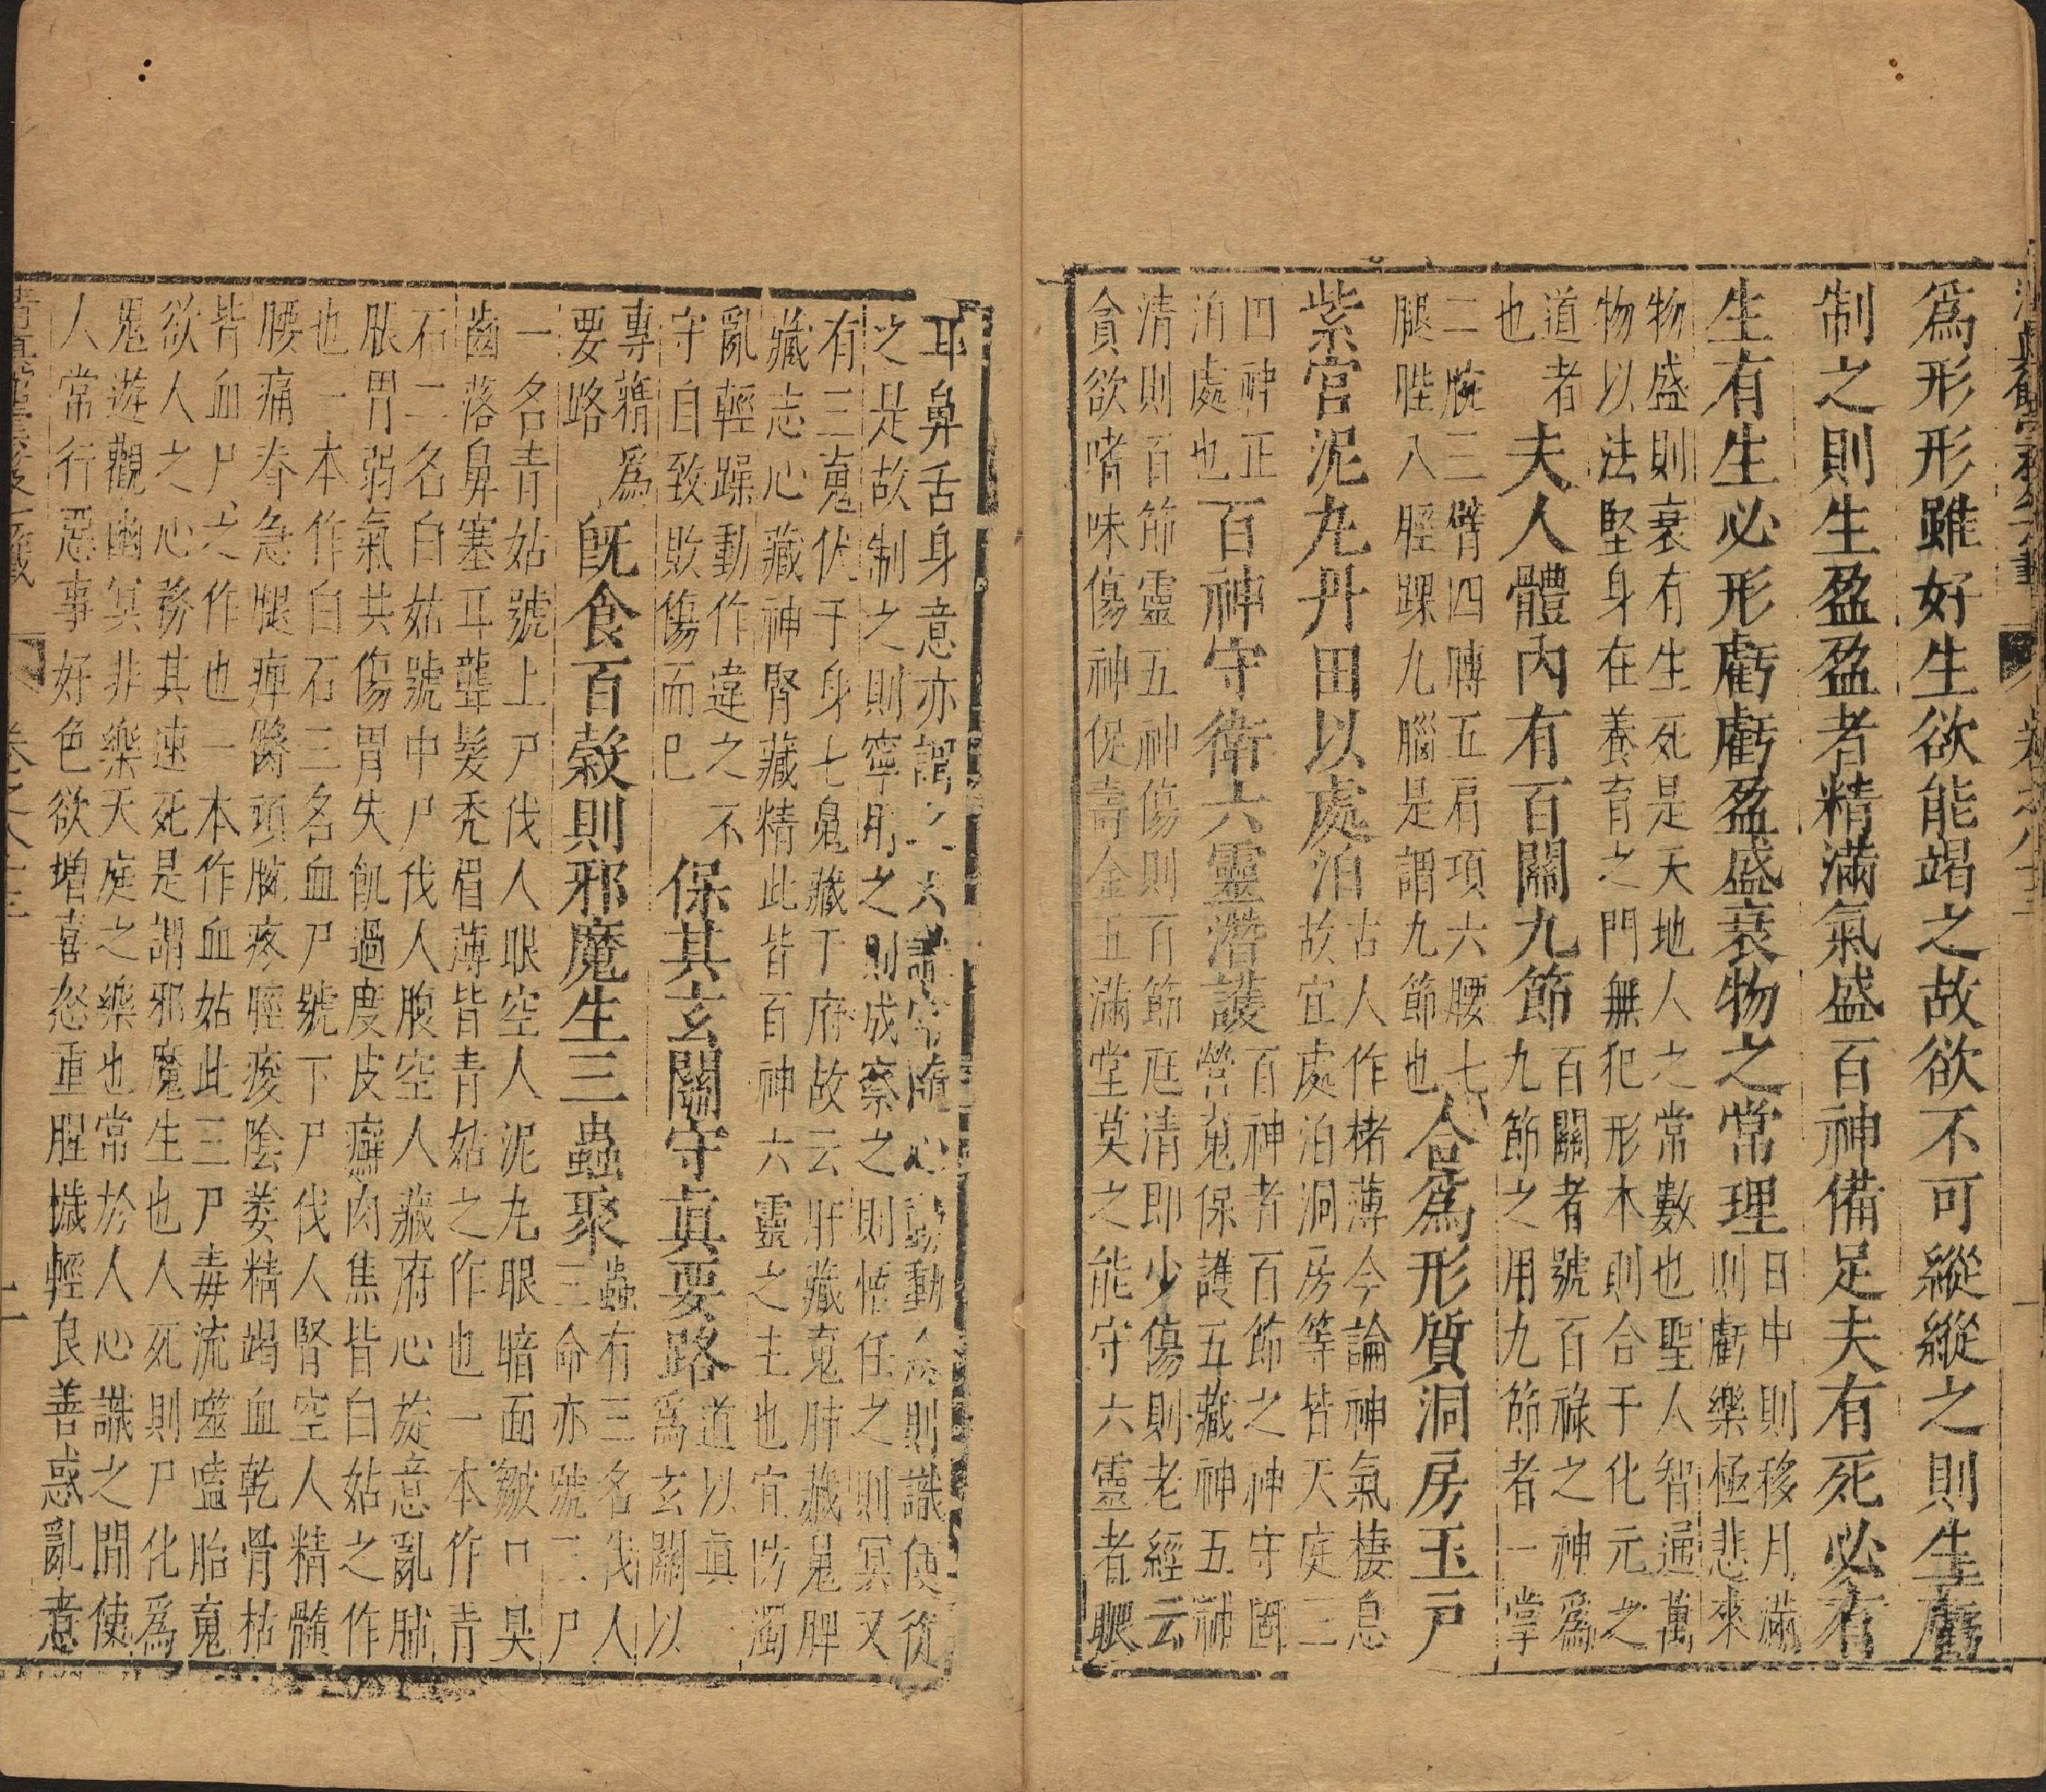 爲形形雖好生欲能竭之故欲不可縱縱之則生虧
制之則生盈盈者精滿氣盛百神備足夫有死必有
生有生必形虧虧盈盛衰物之常理
日中則移月滿
則虧樂極悲來
物盛則衰有生死是天地人之常數也聖人智通萬
物以法堅身在養育之門無犯形木則合于化元之
道者
也
夫人體內有百關九節
百關者號百祿之神爲
九節之用九節者一掌
二腕三臂四髆五肩項六腰七
腿脞八脛踝九腦是謂九節也
合爲形質洞房玉戶
紫宮泥丸丹田以處泊
古人作楮薄今論神氣棲息
故宜處泊洞房等皆天庭三
四神正
泊處也
百神守衛六靈潛護
百神者百節之神守固
營䰟保護五藏神五神
清則百節靈五神傷則百節尫清即少傷則老經云
貪欲嗜味傷神促壽金玉滿堂莫之能守六靈者眼
耳鼻舌身意亦謂之六識常隨心動動念則識使從
之是故制之則寧用之則成察之則悟任之則冥又
有三䰟伏于身七魄藏于府故云肝藏䰟肺藏魄脾
藏志心藏神腎藏精此皆百神六靈之主也宜防濁
亂輕躁動作違之不
守自致敗傷而已
保其玄關守真要路
道以真
爲玄關以
專精爲
要路
既食百穀則邪魔生三蟲聚
蟲有三名伐人
三命亦號三尸
一名青姑號上尸伐人眼空人泥丸眼暗面皺口臭
齒落鼻塞耳聾髮秃眉薄皆青姑之作也一本作青
石二名白姑號中尸伐人腹空人藏府心旋意亂肺
脹胃弱氣共傷胃失飢過度皮癬肉焦皆白姑之作
也一本作白石三名血尸號下尸伐人腎空人精髓
腰痛脊急腿痺臀頑腕疼脛痠陰萎精竭血乾骨枯
皆血尸之作也一本作血姑此三尸毒流噬嗑胎䰟
欲人之心務其速死是謂邪魔生也人死則尸化爲
鬼遊觀幽冥非樂天庭之樂也常於人心識之間使
人常行惡事好色欲增喜怒重腥穢輕良善惑亂意